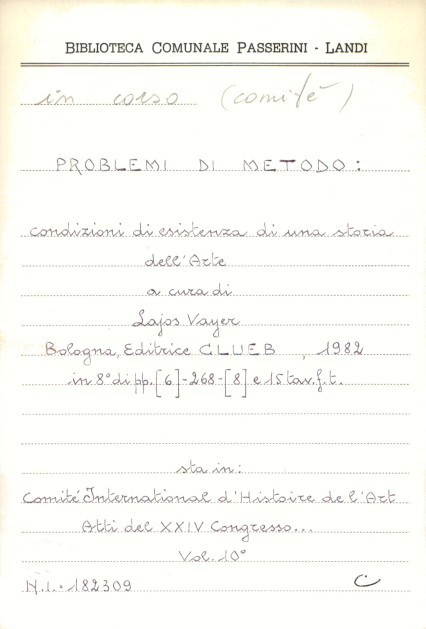 BIBLIOTECA COMUNALE PASSERINI - LANDI
in corso (comité)
PROBLEMI DI METODO:
condizioni di esistenza di una storia
dell'Arte
a cura di
Lajos Vayer
Bologna, Editrice CLUEB, 1982
in 8° di pp. [6]-268-[8] e 15 tav. f. t.
sta in:
Comité International d'Histoire de l'Art
Atti del XXIV Congresso...
Vol. 10°
N.I. - 182309